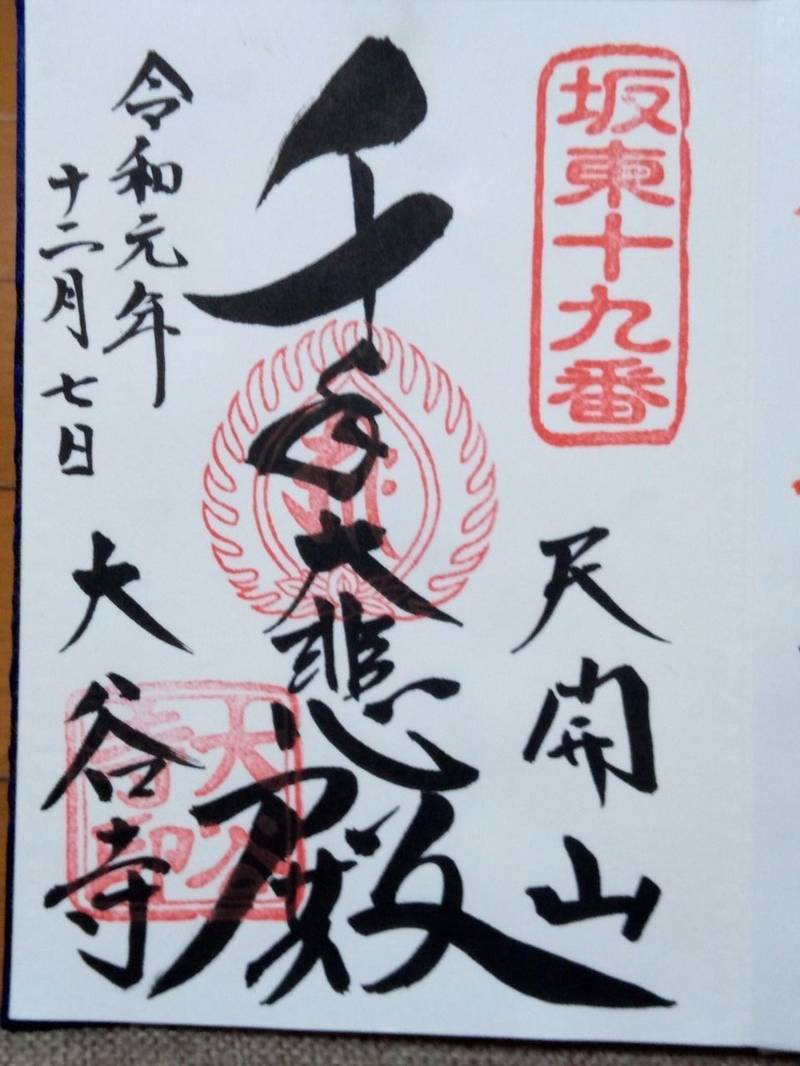 坂東十九番
天開山
千手大悲殿
令和元年
十二月七日
大谷寺